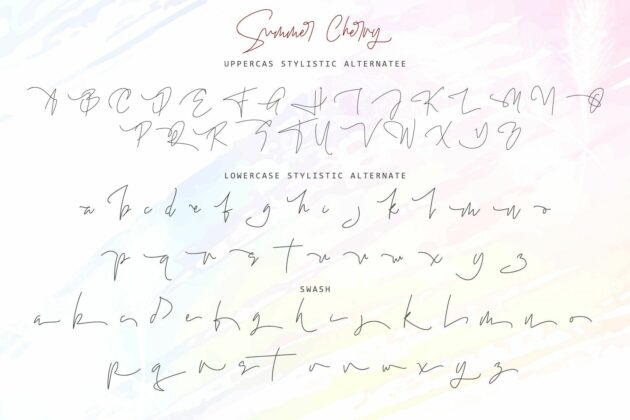 Summer Cherry
UPPERCAS STYLISTIC ALTERNATEE
A B C D E F G H I J K L M N O
P Q R S T U V W X Y Z
LOWERCASE STYLISTIC ALTERNATE
a b c d e f g h i j k l m n o
p q r s t u v w x y z
SWASH
a b c d e f g h i j k l m n o
p q r s t u v w x y z